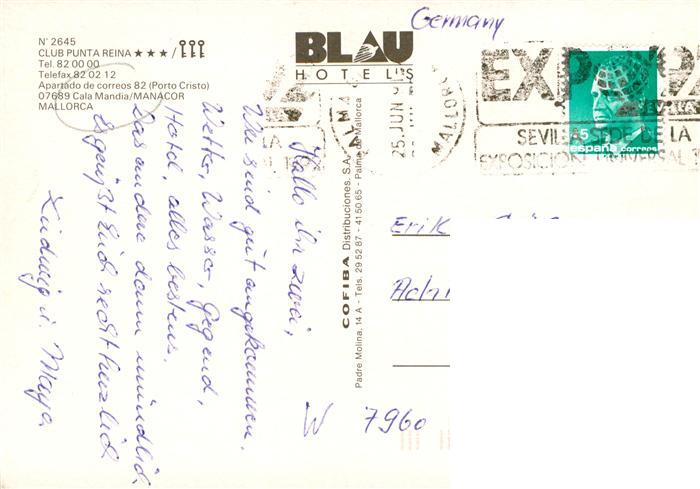 N° 2645
CLUB PUNTA REINA ★★★/
Tel. 82 00 00
Telefax 82 02 12
Apartado de correos 82 (Porto Cristo)
07689 Cala Mandia/MANACOR
MALLORCA
BLAU
HOTELS
Germany
25.JUN
MALLOR
EXPO 92
SEVILLA SEDE DE LA
EXPOSICION UNIVERSAL
45
españa correos
Hallo ihr zwei,
Wir sind gut angekommen.
Wetter, Wasser, Gegend,
Hotel, alles bestens.
Das andere dann mündlich
Es grüßt Euch recht herzlich
Ludwig u. Maya.
COFIBA Distribuciones, S.A.
Padre Molina, 14 A - Tels. 29 52 87 - 41 50 65 - Palma de Mallorca
Erik
W 7960